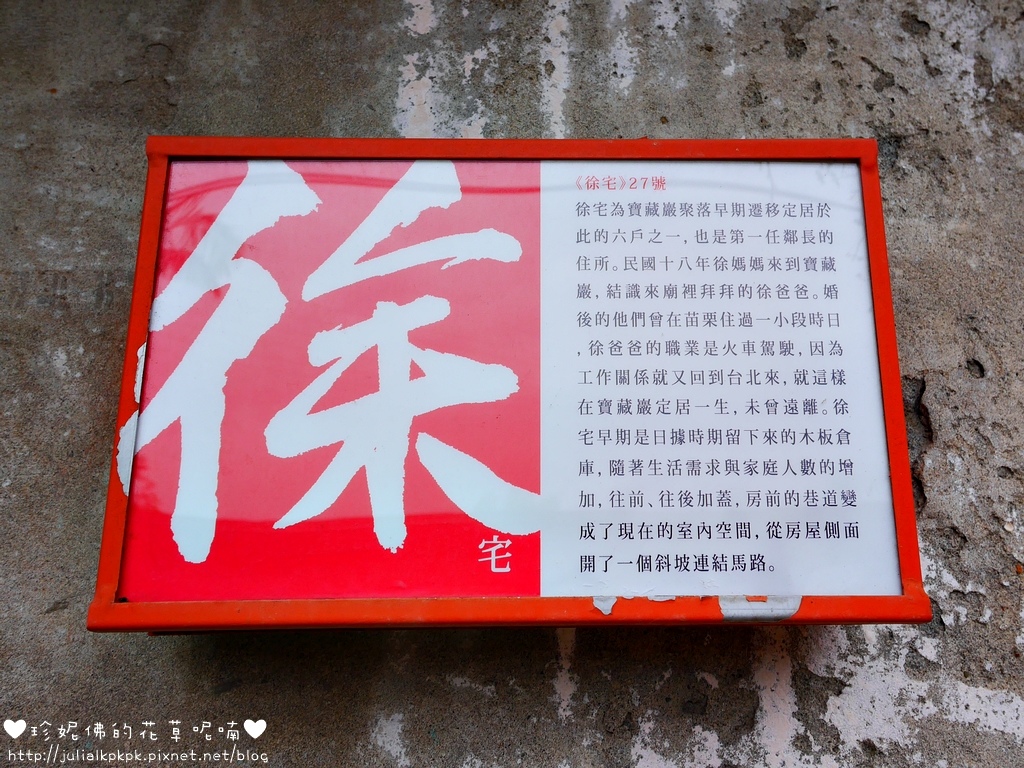 徐
宅
《徐宅》27號
徐宅為寶藏巖聚落早期遷移定居於
此的六戶之一,也是第一任鄰長的
住所。民國十八年徐媽媽來到寶藏
巖,結識來廟裡拜拜的徐爸爸。婚
後的他們曾在苗栗住過一小段時日
,徐爸爸的職業是火車駕駛,因為
工作關係就又回到台北來,就這樣
在寶藏巖定居一生,未曾遠離。徐
宅早期是日據時期留下來的木板倉
庫,隨著生活需求與家庭人數的增
加,往前、往後加蓋,房前的巷道變
成了現在的室內空間,從房屋側面
開了一個斜坡連結馬路。
♥珍妮佛的花草呢喃♥
http://julialkpkpk.pixnet.net/blog